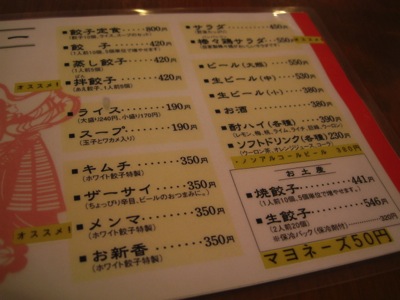 ー
■餃子定食‥‥‥800円
■餃 子‥‥‥420円
(1人前10個、5個単位で焼きます。)
■蒸し餃子‥‥‥420円
(1人前8個)
オススメ!
■拌餃子‥‥‥420円
(あえ餃子、1人前8個)
■ライス‥‥‥190円
(大盛り240円、小盛り170円)
■スープ‥‥‥190円
(玉子とワカメ入り)
■キムチ‥‥‥350円
(ホワイト餃子特製)
■ザーサイ‥‥‥350円
(ちょっぴり辛目、ビールのおつまみに。)
オススメ!
■メンマ‥‥‥350円
(ホワイト餃子特製)
■お新香‥‥‥350円
(ホワイト餃子特製)
■サラダ‥‥‥450円
■棒々鶏サラダ‥‥550円
オススメ
■ビール(大瓶)‥‥550円
■生ビール(中)‥‥530円
■生ビール(小)‥‥380円
■お酒‥‥‥380円
■酎ハイ(各種)‥‥390円
(レモン、梅、桃、ライム、ライチ、巨峰、ウーロン)
■ソフトドリンク(各種)230円
(ウーロン茶、オレンジジュース、コーラ)
・ノンアルコールビール 380円
お土産
■焼餃子‥‥‥441円
(1人前10個、5個単位で焼きます。)
■生餃子‥‥‥546円
(2人前20個)
※保冷パック(保冷剤付)‥‥320円
マヨネーズ50円